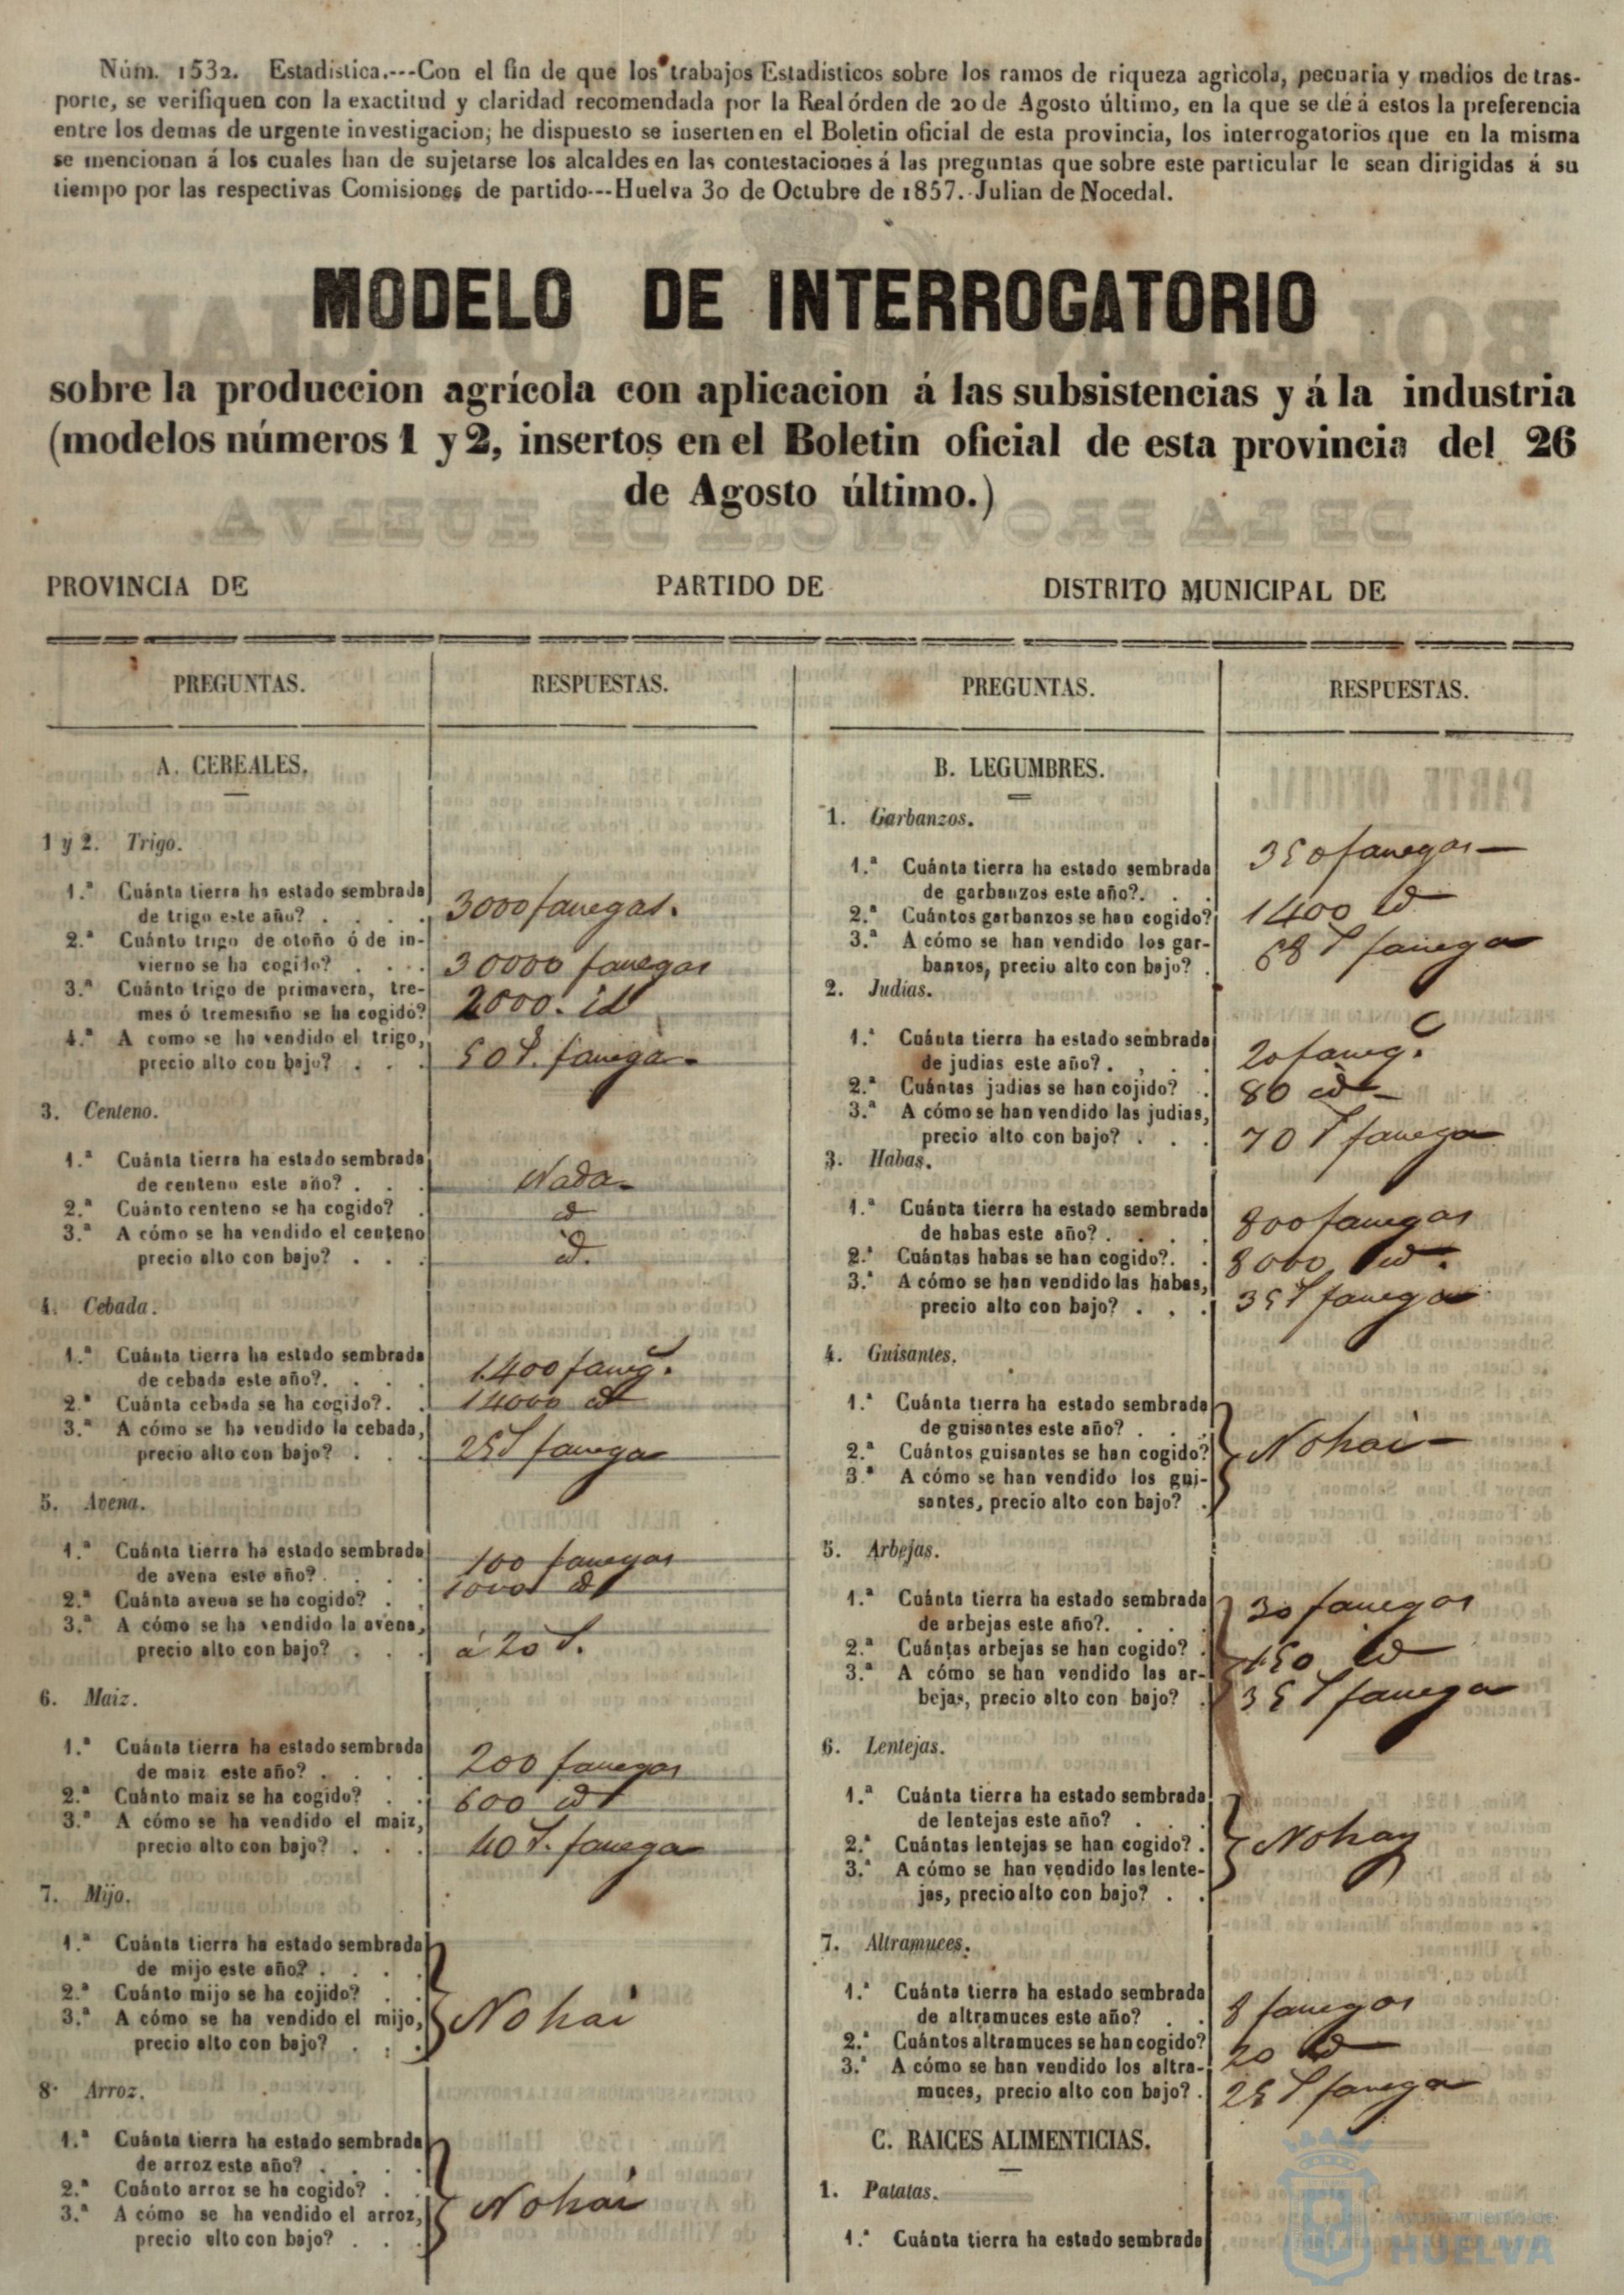 Núm. 1532. Estadistica.---Con el fin de que los trabajos Estadisticos sobre los ramos de riqueza agricola, pecuaria y medios de tras-
porte, se verifiquen con la exactitud y claridad recomendada por la Real órden de 20 de Agosto último, en la que se dé á estos la preferencia
entre los demas de urgente investigacion; he dispuesto se inserten en el Boletin oficial de esta provincia, los interrogatorios que en la misma
se mencionan á los cuales han de sujetarse los alcaldes en las contestaciones á las preguntas que sobre este particular le sean dirigidas á su
tiempo por las respectivas Comisiones de partido---Huelva 30 de Octubre de 1857. Julian de Nocedal.
MODELO DE INTERROGATORIO
sobre la produccion agrícola con aplicacion á las subsistencias y á la industria
(modelos números 1 y 2, insertos en el Boletin oficial de esta provincia del 26
de Agosto último.)
PROVINCIA DE PARTIDO DE DISTRITO MUNICIPAL DE
PREGUNTAS. RESPUESTAS.
A. CEREALES.
1 y 2. Trigo.
1.ª Cuánta tierra ha estado sembrada
de trigo este año? . . . . 3000 fanegas.
2.ª Cuánto trigo de otoño ó de in-
vierno se ha cogido? . . . 30000 fanegas
3.ª Cuánto trigo de primavera, tre-
mes ó tremesino se ha cogido? 2000. id
4.ª A como se ha vendido el trigo,
precio alto con bajo? . . . 50 fanega
3. Centeno.
1.ª Cuánta tierra ha estado sembrada
de centeno este año? . . . Nada
2.ª Cuánto centeno se ha cogido? . id
3.ª A cómo se ha vendido el centeno
precio alto con bajo? . . . id.
4. Cebada.
1.ª Cuánta tierra ha estado sembrada
de cebada este año?. . . . 1400 faneg.
2.ª Cuánta cebada se ha cogido? . . 14000 id
3.ª A cómo se ha vendido la cebada,
precio alto con bajo? . . . 25 fanega
5. Avena.
1.ª Cuánta tierra ha estado sembrada
de avena este año? . . . . 100 fanegas
2.ª Cuánta avena se ha cogido? . . 1000 id
3.ª A cómo se ha vendido la avena,
precio alto con bajo? . . . á 20
6. Maiz.
1.ª Cuánta tierra ha estado sembrada
de maiz este año? . . . . 200 fanegas
2.ª Cuánto maiz se ha cogido? . . 600 id
3.ª A cómo se ha vendido el maiz,
precio alto con bajo? . . . 40 fanega
7. Mijo.
1.ª Cuánta tierra ha estado sembrada
de mijo este año? . . . .
2.ª Cuánto mijo se ha cojido? . . No hai
3.ª A cómo se ha vendido el mijo,
precio alto con bajo? . . .
8. Arroz.
1.ª Cuánta tierra ha estado sembrada
de arroz este año? . . . .
2.ª Cuánto arroz se ha cogido? . . No hai
3.ª A cómo se ha vendido el arroz,
precio alto con bajo? . . .
PREGUNTAS. RESPUESTAS.
B. LEGUMBRES.
1. Garbanzos.
1.ª Cuánta tierra ha estado sembrada 350 fanegas
de garbanzos este año?. . .
2.ª Cuántos garbanzos se han cogido? 1400 id
3.ª A cómo se han vendido los gar-
banzos, precio alto con bajo? . 68 fanega
2. Judias.
1.ª Cuánta tierra ha estado sembrada
de judias este año? . . . . 20 faneg.
2.ª Cuántas judias se han cojido? . 80 id
3.ª A cómo se han vendido las judias,
precio alto con bajo? . . . 70 fanega
3. Habas.
1.ª Cuánta tierra ha estado sembrada
de habas este año? . . . . 800 fanegas
2.ª Cuántas habas se han cogido?. . 8000 id.
3.ª A cómo se han vendido las habas,
precio alto con bajo? . . . 35 fanega
4. Guisantes.
1.ª Cuánta tierra ha estado sembrada
de guisantes este año? . . .
2.ª Cuántos guisantes se han cogido? No hai
3.ª A cómo se han vendido los gui-
santes, precio alto con bajo? .
5. Arbejas.
1.ª Cuánta tierra ha estado sembrada 30 fanegas
de arbejas este año?. . . .
2.ª Cuántas arbejas se han cogido? . 150 id
3.ª A cómo se han vendido las ar-
bejas, precio alto con bajo? . 35 fanega
6. Lentejas.
1.ª Cuánta tierra ha estado sembrada
de lentejas este año? . . .
2.ª Cuántas lentejas se han cogido? . No hay
3.ª A cómo se han vendido las lente-
jas, precio alto con bajo? . .
7. Altramuces.
1.ª Cuánta tierra ha estado sembrada
de altramuces este año? . . 8 fanegas
2.ª Cuántos altramuces se han cogido? 20 id
3.ª A cómo se han vendido los altra-
muces, precio alto con bajo? . 25 fanega
C. RAICES ALIMENTICIAS.
1. Patatas.
1.ª Cuánta tierra ha estado sembrada
Ayuntamiento de
HUELVA